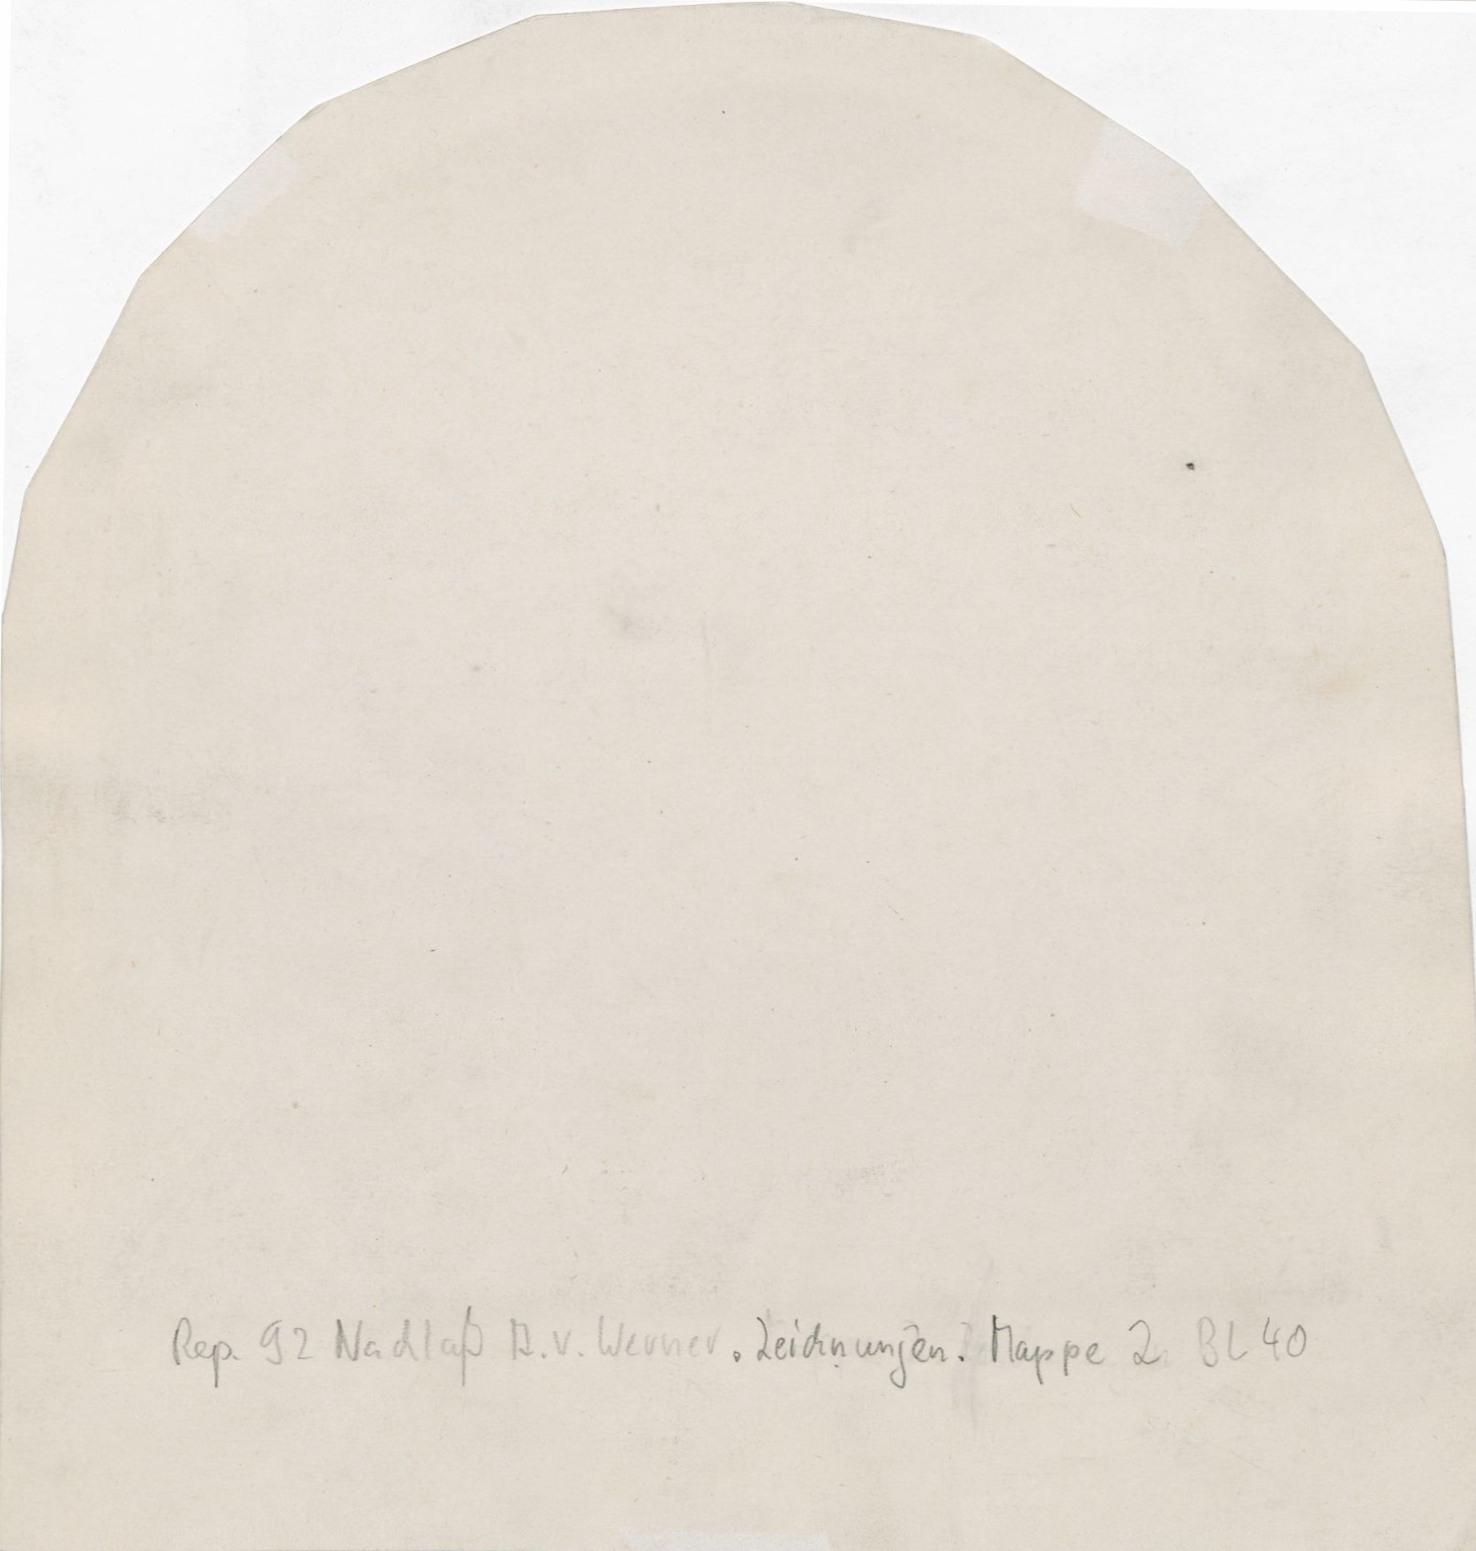 Rep. 92 Nachlaß A.v. Werner. Zeichnungen. Mappe 2 Bl 40